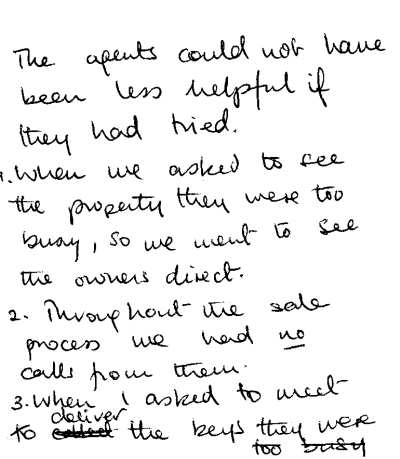 The agents could not have
been less helpful if
they had tried.
1. When we asked to see
the property they were too
busy, so we went to see
the owners direct.
2. Throughout the sale
process we had no
calls from them.
3. When I asked to meet
to deliver the keys they were
too busy